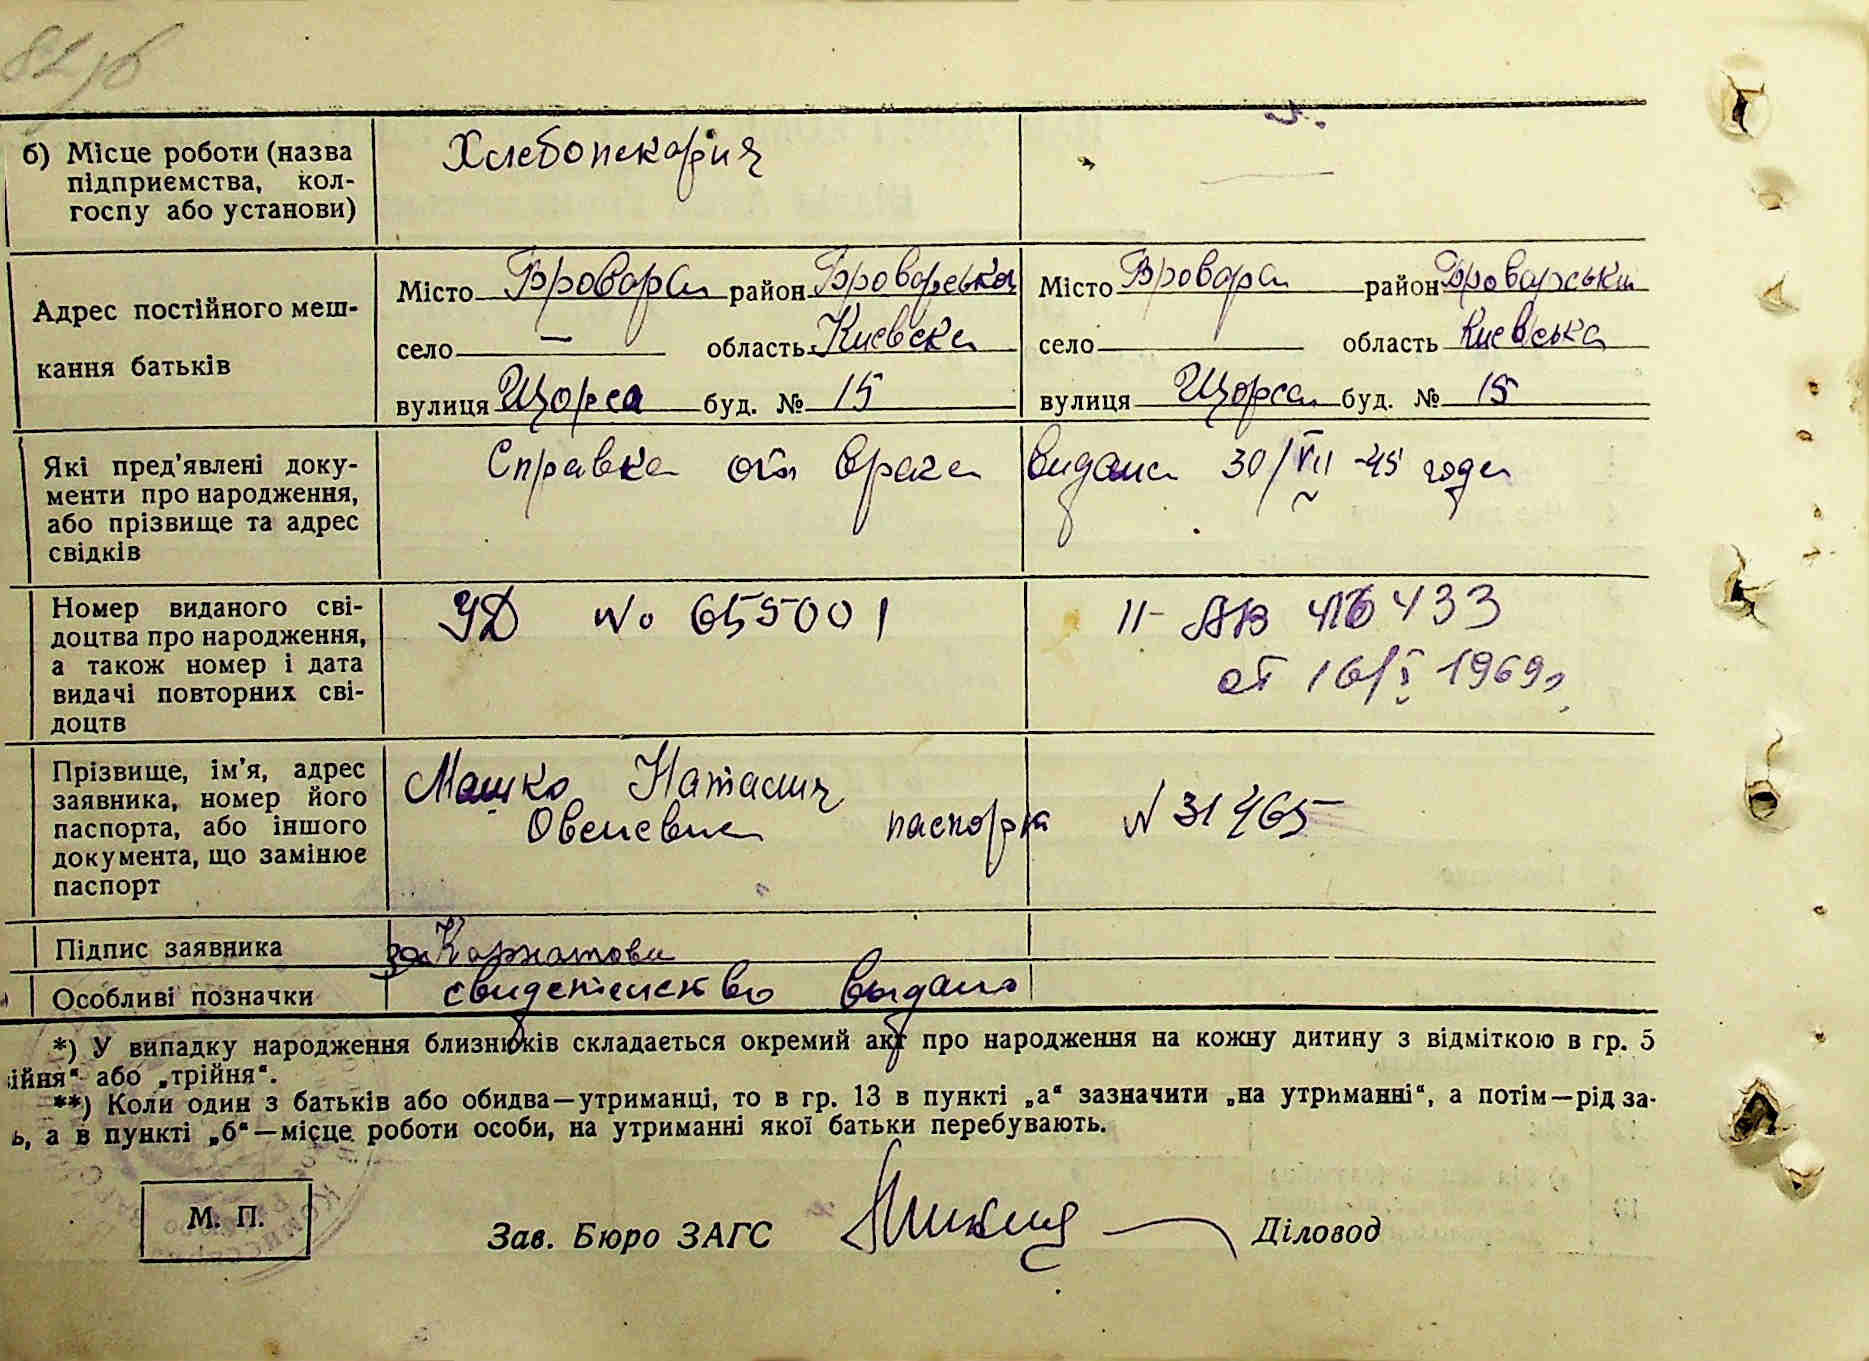 82 об
б) Місце роботи (назва
підприємства, кол-
госпу або установи)
Хлебопекария
Адрес постійного меш-
кання батьків
Місто Бровари район Броварська
село — область Киевска
вулиця Щорса буд. № 15
Місто Бровари район Броварський
село область Киевська
вулиця Щорса буд. № 15
Які пред'явлені доку-
менти про народження,
або прізвище та адрес
свідків
Справка от врача видана 30/VII-45 года
Номер виданого сві-
доцтва про народження,
а також номер і дата
видачі повторних сві-
доцтв
УД № 655001
II-АВ 416433
от 16/I 1969г
Прізвище, ім'я, адрес
заявника, номер його
паспорта, або іншого
документа, що замінює
паспорт
Машко Наталия
паспорт N 31465
Підпис заявника
за
Особливі позначки
свидетельство выдано
*) У випадку народження близнюків складається окремий акт про народження на кожну дитину з відміткою в гр. 5
ійня“ або „трійня“.
**) Коли один з батьків або обидва—утриманці, то в гр. 13 в пункті „а“ зазначити „на утриманні“, а потім—рід за-
ь, а в пункті „б“—місце роботи особи, на утриманні якої батьки перебувають.
М. П.
Зав. Бюро ЗАГС
Діловод